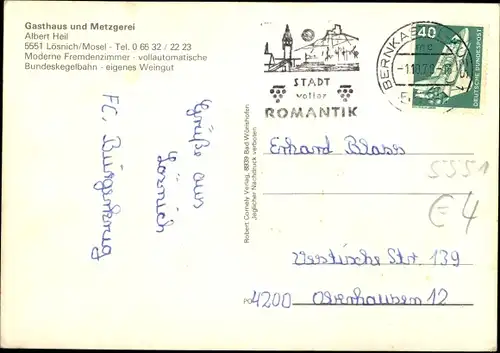 Gasthaus und Metzgerei
Albert Heil
5551 Lösnich/Mosel - Tel. 0 65 32 / 22 23
Moderne Fremdenzimmer - vollautomatische
Bundeskegelbahn - eigenes Weingut
Grüße aus
Lösnich
FC. Bürgerkrug
Robert Cornely Verlag, 8939 Bad Wörishofen
Jeglicher Nachdruck verboten
STADT
voller
ROMANTIK
BERNKASTEL-KUES 1
40
DEUTSCHE BUNDESPOST
Erhard Blass
5551
€4
Vestische Str. 139
4200 Oberhausen 12